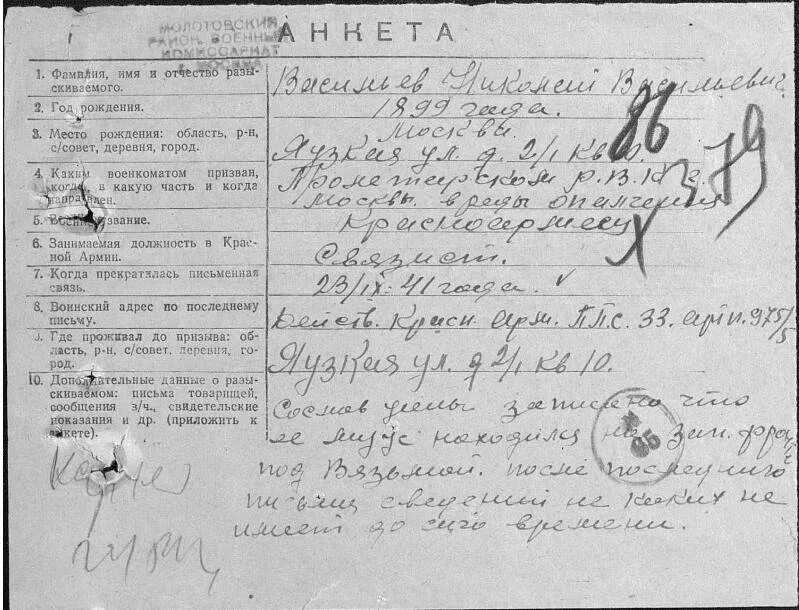 МОЛОТОВСКИЙ
РАЙОН. ВОЕННЫЙ
КОМИССАРИАТ
г. МОСКВА
АНКЕТА
1. Фамилия, имя и отчество разы-
скиваемого.
Васильев Николай Васильевич
2. Год рождения.
1899 года.
3. Место рождения: область, р-н,
с/совет, деревня, город.
Москва.
Яузкая ул. д. 2/1 кв 10.
86
79
4. Каким военкоматом призван,
когда, в какую часть и когда
направлен.
Пролетарском р.В.К. г.
Москвы. в ряды ополчения
5. Военное звание.
Красноармеец
6. Занимаемая должность в Крас-
ной Армии.
Связист.
7. Когда прекратилась письменная
связь.
23/IX-41 года.
8. Воинский адрес по последнему
письму.
Действ. Красн. Арм. П.П.С. 33. арт п. 975/5
9. Где проживал до призыва: об-
ласть, р-н, с/совет, деревня, го-
род.
Яузкая ул. д 2/1 кв 10.
10. Дополнительные данные о разы-
скиваемом: письма товарищей,
сообщения в/ч., свидетельские
показания и др. (приложить к
анкете).
Со слов жены записано что
ее муж находился на Зап. фрон
под Вязьмой. после последнего
письма сведений не каких не
имеет до сего времени.